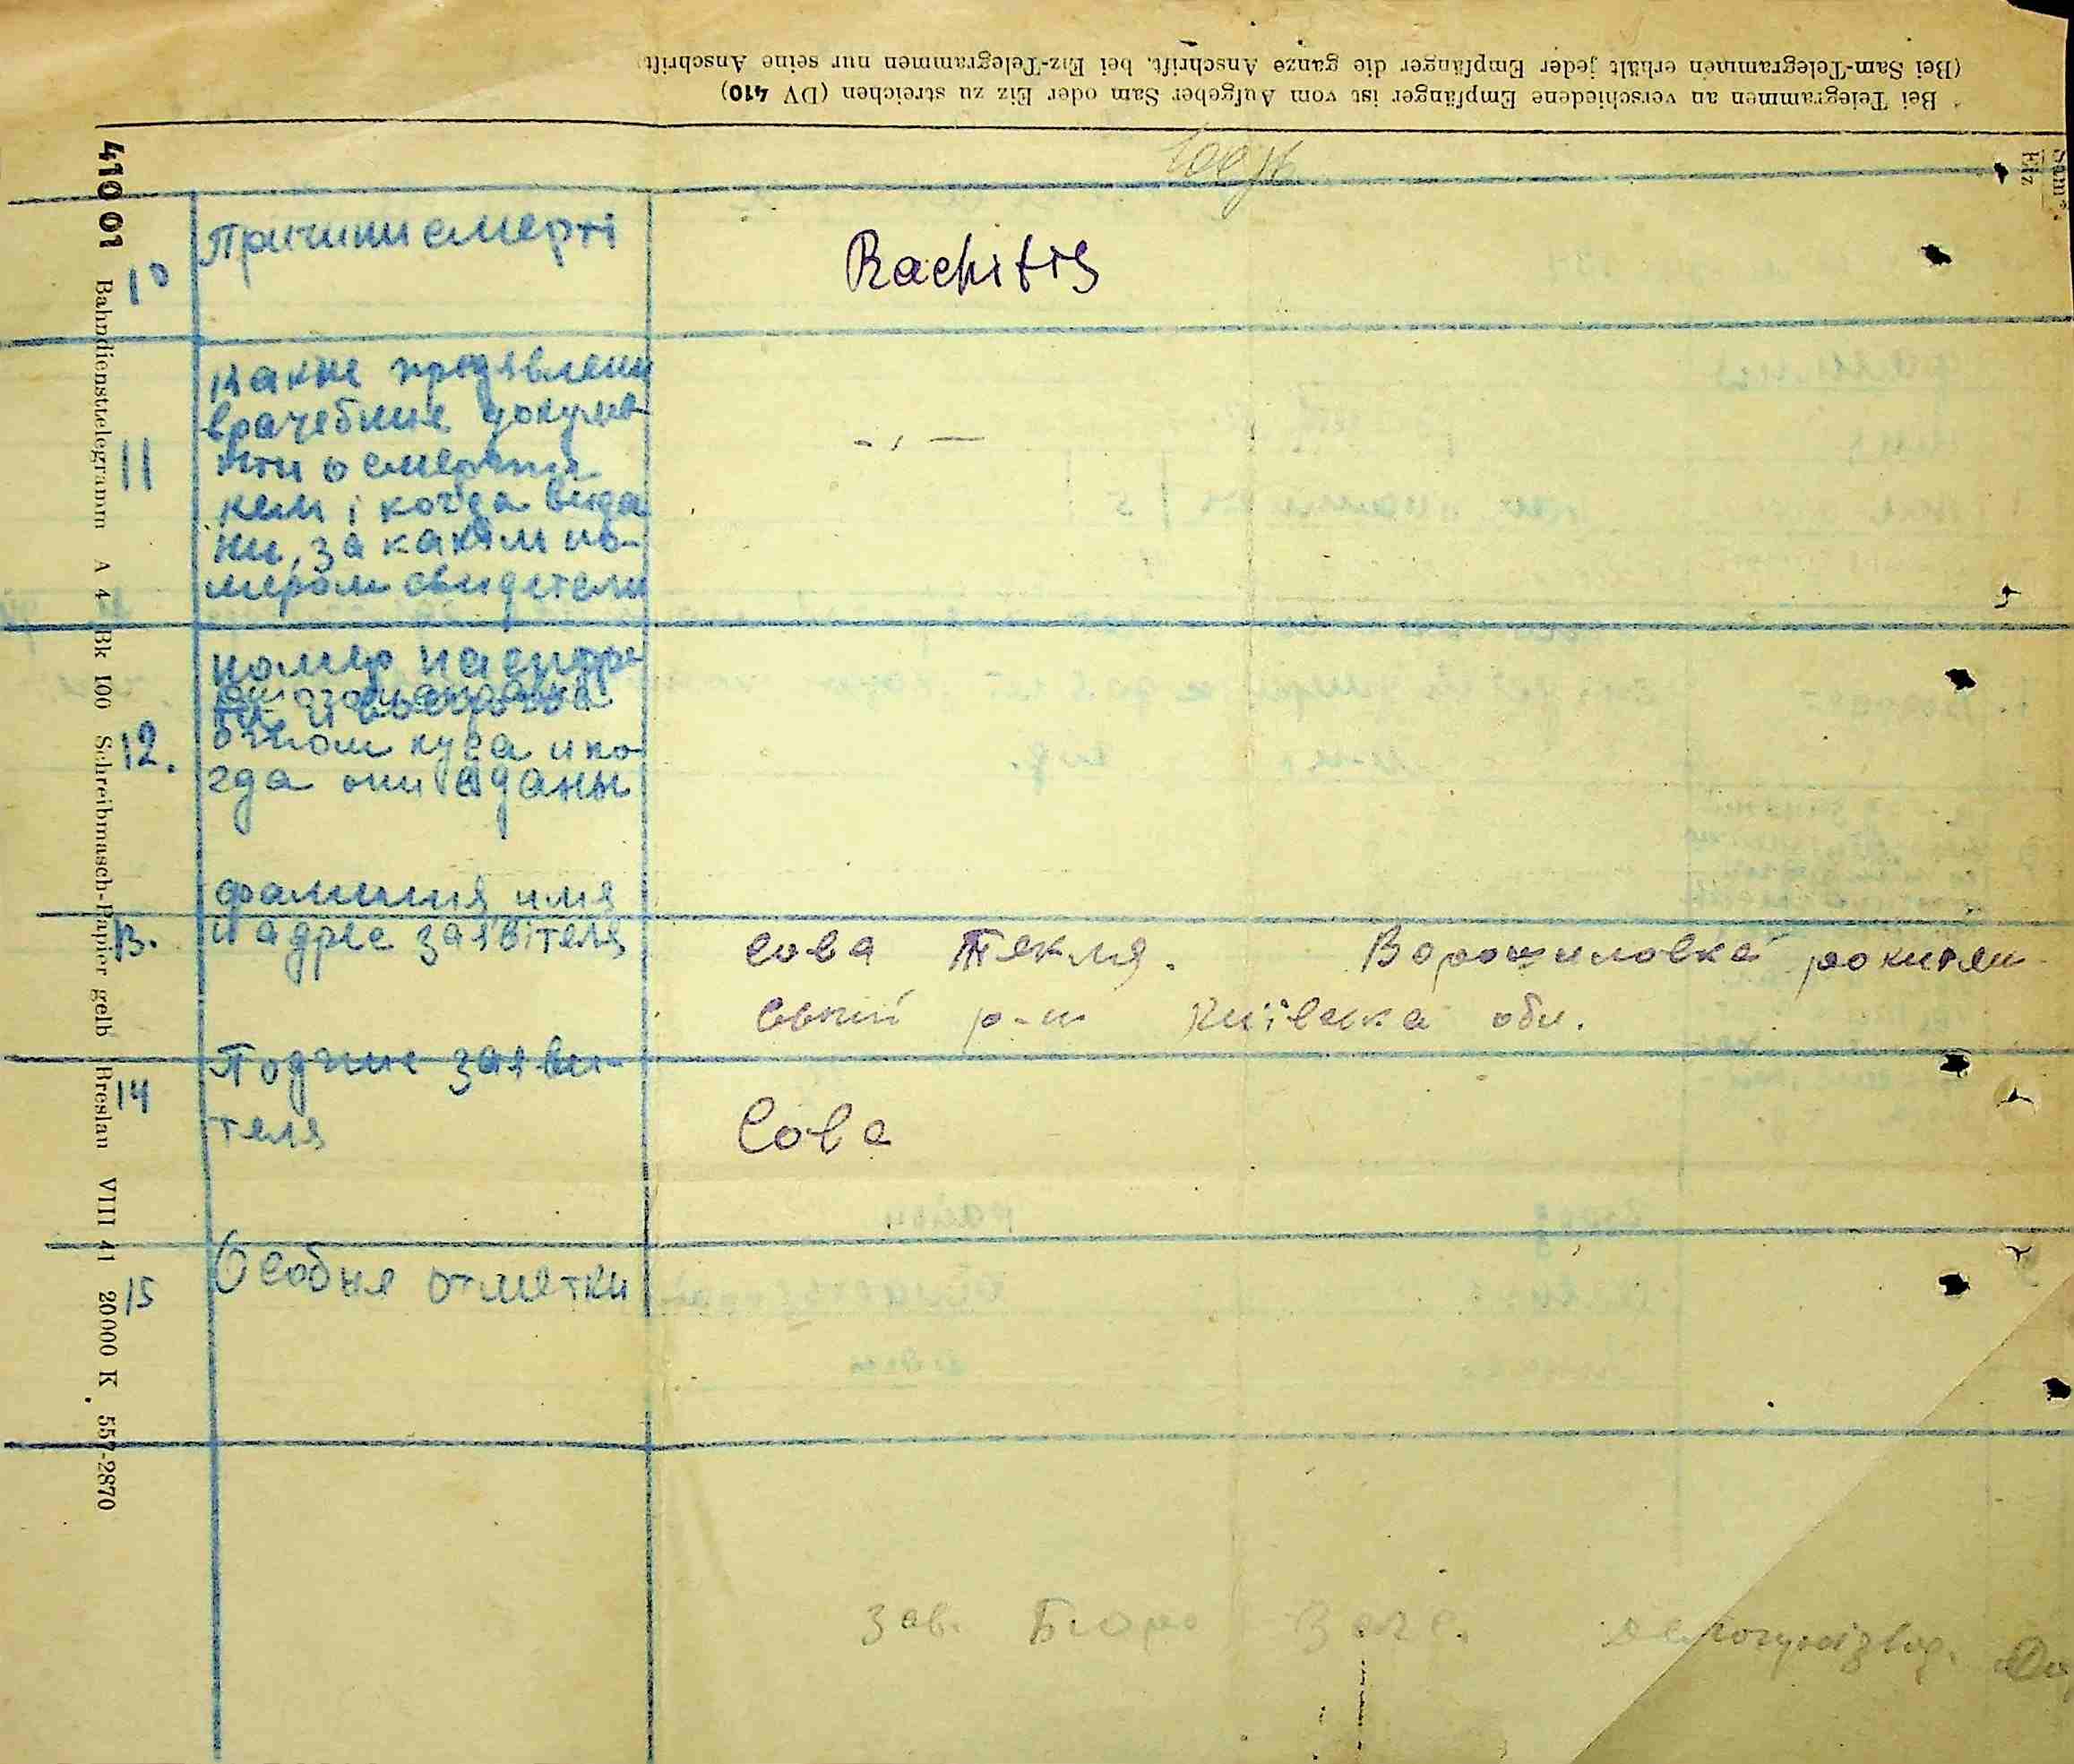 (Bei Sam-Telegrammen erhält jeder Empfänger die ganze Anschrift, bei Eiz-Telegrammen nur seine Anschrift)
* Bei Telegrammen an verschiedene Empfänger ist vom Aufgeber Sam oder Eiz zu streichen (DV 410)
Sam*
Eiz
410 01 Bahndiensttelegramm A 4 Bk 100 Schreibmasch-Papier gelb Breslau VIII 41 20000 K 557-2870
10 Причини смерті
Rachitis
11 Какие предявлени
врачебние докуме
нти о смерти
кем і когда вида
ни, за каким но-
мером свидетели
12. номер
куда и ко
гда они сданы
фамилия имя
13. и адрес заявітеля
Сова Текля. Ворошиловка рокитян
ський р-н Київська обл.
14 Подпис заяви-
теля
Сова
15 Особые отметки
Зав. Бюро Загс.